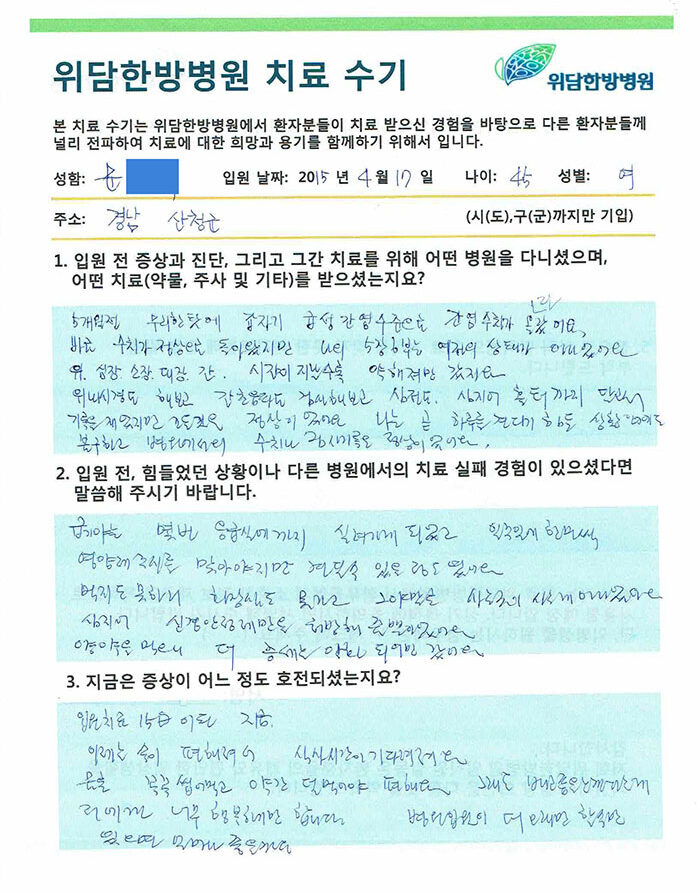 위담한방병원 치료 수기
위담한방병원
본 치료 수기는 위담한방병원에서 환자분들이 치료 받으신 경험을 바탕으로 다른 환자분들께
널리 전파하여 치료에 대한 희망과 용기를 함께하기 위해서 입니다.
성함: 윤 입원 날짜: 2015 년 4 월 17 일 나이: 45 성별: 여
주소: 경남 산청군 (시(도),구(군)까지만 기입)
1. 입원 전 증상과 진단, 그리고 그간 치료를 위해 어떤 병원을 다니셨으며,
어떤 치료(약물, 주사 및 기타)를 받으셨는지요?
5개월전 무리한 탓에 갑자기 급성 간염 수준으로 간염 수치가 올랐어요
바로 수치가 정상으로 돌아왔지만 나의 5장 6부는 예전의 상태가 아니었어요
위. 심장. 소장. 대장. 간. 시간이 지날수록 약해져만 갔지요
위내시경도 해보고 초음파도 검사해보고 심전도. 심지어 홀터까지 달면서
기록은 재었지만 정상이었어요 나는 곧 하루를 견디기 힘든 상황
불구하고 병원에서의 수치나 검사기록은 정상이었어요.
2. 입원 전, 힘들었던 상황이나 다른 병원에서의 치료 실패 경험이 있으셨다면
말씀해 주시기 바랍니다.
급기야는 몇번 응급실에까지 실려가게 되었고 일주일에 한번씩
영양제 주사를 맞아야지만 견딜수 있을 정도였어요
먹지도 못하니 사는게 아니었어요
심지어 신경안정제만을 처방해 주었어요
양약을 먹으니 더 증세는 악화 되어만 갔어요
3. 지금은 증상이 어느 정도 호전되셨는지요?
입원치료 15日 이된 지금.
이제는 속이 편해져서 식사시간이 기다려져요
꼭꼭 씹어먹고 약간 덜먹어야 편해요 그래도
저에게는 너무 행복하기만 합니다. 병원입원이 더